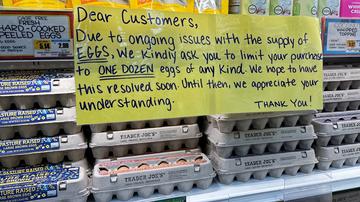 CAGE FREE
FRESH
HARD-COOKED
PEELED EGGS
Dear Customers,
Due to ongoing issues with the supply of
EGGS, We Kindly ask you to limit your purchase
to ONE DOZEN eggs of any Kind. We hope to have
this resolved soon. Until then, we appreciate your
understanding.
THANK YOU!
WHIPPED
TOPPING
PASTURE RAISED
PASTURE RAISED
TRADER JOE'S
TRADER JOE'S
TRADER JOE'S
TRADER JOE'S